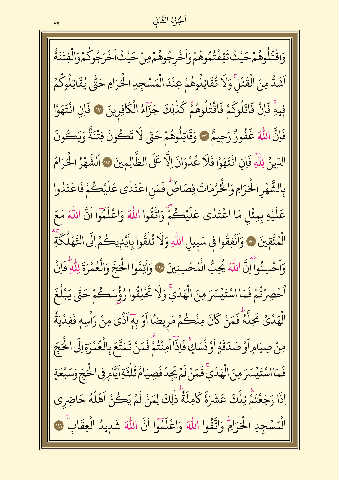 الجزء الثاني
وَاقْتُلُوهُمْ حَيْثُ ثَقِفْتُمُوهُمْ وَاَخْرِجُوهُمْ مِنْ حَيْثُ اَخْرَجُوكُمْ وَالْفِتْنَةُ
اَشَدُّ مِنَ الْقَتْلِۚ وَلَا تُقَاتِلُوهُمْ عِنْدَ الْمَسْجِدِ الْحَرَامِ حَتّٰى يُقَاتِلُوكُمْ
فِيهِۚ فَاِنْ قَاتَلُوكُمْ فَاقْتُلُوهُمْۜ كَذٰلِكَ جَزَٓاءُ الْكَافِرِينَ فَاِنِ انْتَهَوْا
فَاِنَّ اللّٰهَ غَفُورٌ رَحِيمٌ وَقَاتِلُوهُمْ حَتّٰى لَا تَكُونَ فِتْنَةٌ وَيَكُونَ
الدِّينُ لِلّٰهِۜ فَاِنِ انْتَهَوْا فَلَا عُدْوَانَ اِلَّا عَلَى الظَّالِمِينَ اَلشَّهْرُ الْحَرَامُ
بِالشَّهْرِ الْحَرَامِ وَالْحُرُمَاتُ قِصَاصٌۜ فَمَنِ اعْتَدٰى عَلَيْكُمْ فَاعْتَدُوا
عَلَيْهِ بِمِثْلِ مَا اعْتَدٰى عَلَيْكُمْۖ وَاتَّقُوا اللّٰهَ وَاعْلَمُٓوا اَنَّ اللّٰهَ مَعَ
الْمُتَّقِينَ وَاَنْفِقُوا فِي سَبِيلِ اللّٰهِ وَلَا تُلْقُوا بِاَيْدِيكُمْ اِلَى التَّهْلُكَةِۚ
وَاَحْسِنُواۚ اِنَّ اللّٰهَ يُحِبُّ الْمُحْسِنِينَ وَاَتِمُّوا الْحَجَّ وَالْعُمْرَةَ لِلّٰهِۜ فَاِنْ
اُحْصِرْتُمْ فَمَا اسْتَيْسَرَ مِنَ الْهَدْيِۚ وَلَا تَحْلِقُوا رُؤُ۫سَكُمْ حَتّٰى يَبْلُغَ
الْهَدْيُ مَحِلَّهُۜ فَمَنْ كَانَ مِنْكُمْ مَرِيضاً اَوْ بِهِٓ اَذًى مِنْ رَأْسِهِ فَفِدْيَةٌ
مِنْ صِيَامٍ اَوْ صَدَقَةٍ اَوْ نُسُكٍۚ فَاِذَٓا اَمِنْتُمْ۠ فَمَنْ تَمَتَّعَ بِالْعُمْرَةِ اِلَى الْحَجِّ
فَمَا اسْتَيْسَرَ مِنَ الْهَدْيِۚ فَمَنْ لَمْ يَجِدْ فَصِيَامُ ثَلٰثَةِ اَيَّامٍ فِي الْحَجِّ وَسَبْعَةٍ
اِذَا رَجَعْتُمْۜ تِلْكَ عَشَرَةٌ كَامِلَةٌۜ ذٰلِكَ لِمَنْ لَمْ يَكُنْ اَهْلُهُ حَاضِرِي
الْمَسْجِدِ الْحَرَامِۜ وَاتَّقُوا اللّٰهَ وَاعْلَمُٓوا اَنَّ اللّٰهَ شَدِيدُ الْعِقَابِ